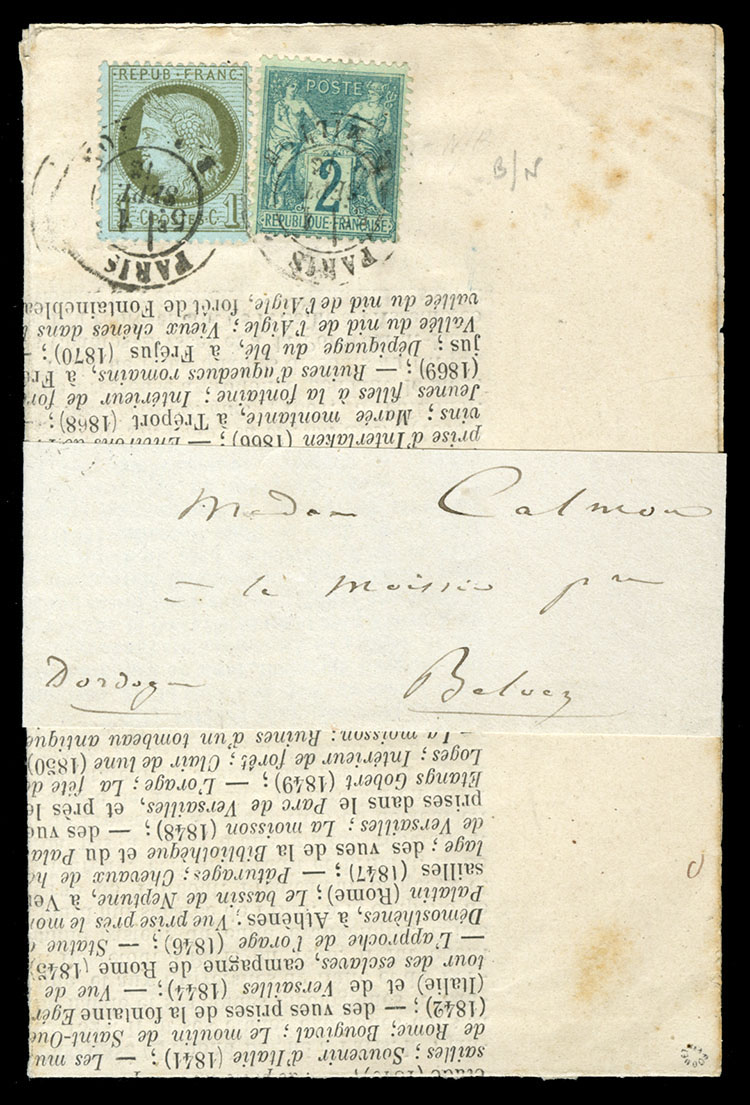 REPUB FRANC
1 C POSTES C 1
POSTE
2
REPUBLIQUE FRANÇAISE
PARIS
PARIS
B/N
Madame Calmon
à la Moissie par
Dordogne Belvez
sailles; Souvenir d'Italie (1841); — Les mu
de Rome; Bougival; Le moulin de Saint-Oue
(1842); — des vues prises de la fontaine Eger
(Italie) et de Versailles (1844); — Vue de
tour des esclaves, campagne de Rome (1845)
— L'approche de l'orage (1846); — Statue
Démosthènes, à Athènes; Vue prise près le mo
Palatin (Rome); Le bassin de Neptune, à Ver
sailles (1847); — Pâturages; Chevaux de ha
lage; des vues de la Bibliothèque et du Palai
de Versailles; La moisson (1848); — des vues
prises dans le Parc de Versailles, et près le
Etangs Gobert (1849); — L'orage; La fête de
Loges; Intérieur de forêt; Clair de lune (1850)
— La moisson; Ruines; Ruines d'un tombeau antique
prise d'Interlaken (1866); — Environs de
vins; Marée montante, à Tréport (1868); —
Jeunes filles à la fontaine; Intérieur de for
(1869); — Ruines d'aqueducs romains, à Fré
jus; Dépiquage du blé, à Fréjus (1870); —
Vallée du nid de l'Aigle; Vieux chênes dans l
vallée du nid de l'Aigle, forêt de Fontaineblea